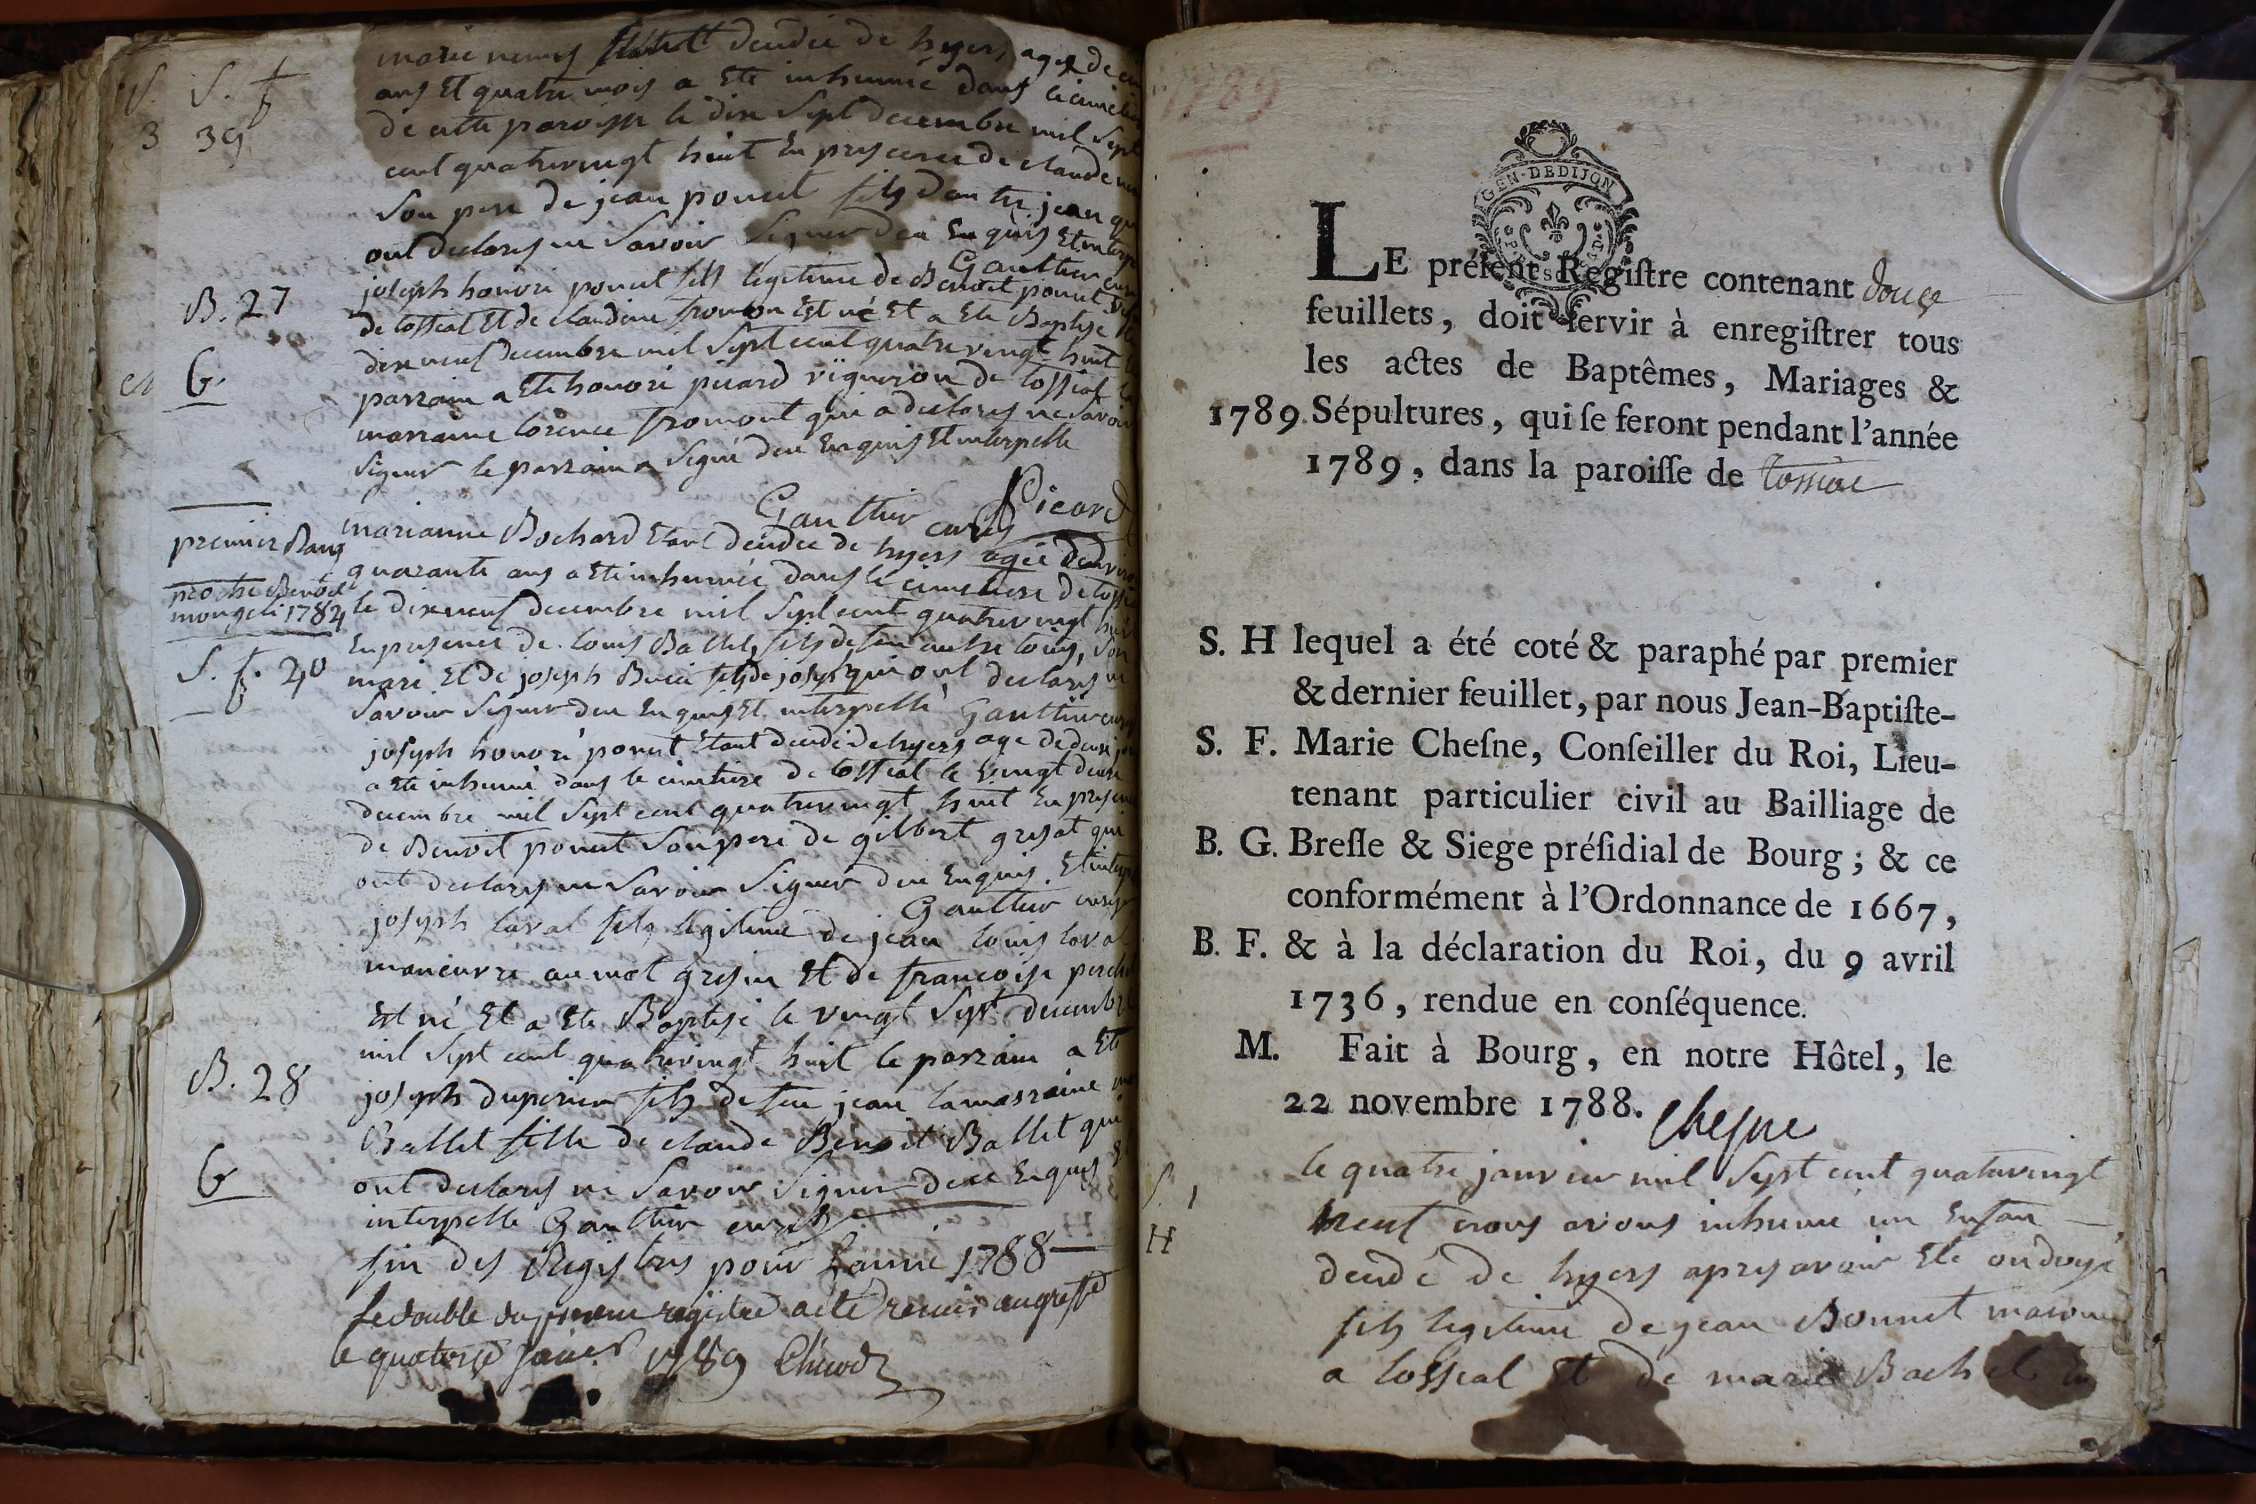 S. S. f
3 39
marie etant decedée de hyers agée de
ans Et quatre mois a Ete inhumée dans le cimetiere
de cette paroisse le dix Sept decembre mil Sept
cent quatrevingt huit En presence de claude
Son pere de jean ponut fils dautre jean qui
ont declarés ne Savoir Signer deu Enquis Et interpe
Gauthier curé
B. 27
G
joseph honoré ponut fils legitime de Benoit ponut
de tossiat Et de claudine fromon Est né Et a Ete Baptisé le
dix neuf decembre mil Sept cent quatre vingt huit le
parrain a Ete honoré picard vigneron de tossiat la
marraine lorence fromont qui a declarés ne Savoir
Signer le parrain a Signé deu Enquis Et interpelle
Gauthier curé Picard
premier Banq
S. f. 40
marianne Bochard Etant decedée de hyers agée denviron
quarante ans a Ete inhumée dans le cimetiere de toss
le dix neuf decembre mil Sept cent quatrevingt huit
En presence de louis Ballet fils de feu autre louis, Son
mari Et de joseph Buiri fils de joseph qui ont declarés ne
Savoir Signer deu Enquis Et interpellé Gauthier curé
joseph honoré ponut Etant decedé de hyers age de deux jo
a Ete inhumé dans le cimetiere de tossiat le vingt deux
decembre mil Sept cent quatrevingt huit En presence
de Benoit ponut Son pere de gilbert grisat qui
ont declarés ne Savoir Signer deu Enquis Et interp
Gauthier curé
B. 28
G
joseph laval fils legitime de jean louis laval
maneuvre au mot grisin Et de francoise perch
Est né Et a Ete Baptisé le vingt Sept decembre
mil Sept cent quatrevingt huit le parrain a Ete
joseph duperier fils de feu jean la marraine
Ballet fille de claude Benoit Ballet qui
ont declarés ne Savoir Signer deu Enquis Et
interpelle Gauthier curé
fin des Registres pour Lannée 1788
le double du present registre a eté remis au greffe
le quatorze janer 1789
1789
GEN. DE DIJON
LE préſent Regiſtre contenant douze
feuillets, doit ſervir à enregiſtrer tous
les actes de Baptêmes, Mariages &
1789. Sépultures, qui ſe feront pendant l'année
1789, dans la paroiſſe de tossiat
S. H lequel a été coté & paraphé par premier
& dernier feuillet, par nous Jean-Baptiſte-
S. F. Marie Cheſne, Conſeiller du Roi, Lieu-
tenant particulier civil au Bailliage de
B. G. Breſſe & Siege préſidial de Bourg ; & ce
conformément à l'Ordonnance de 1667,
B. F. & à la déclaration du Roi, du 9 avril
1736, rendue en conſéquence.
M. Fait à Bourg, en notre Hôtel, le
22 novembre 1788.
Chesne
S. 1
H
le quatre janvier mil Sept cent quatrevingt
neuf nous avons inhumé un Enfan
decedé de hyers apres avoir Ete ondoyé
fils legitime de jean Bonnet
a tossiat Et de marie Bachel